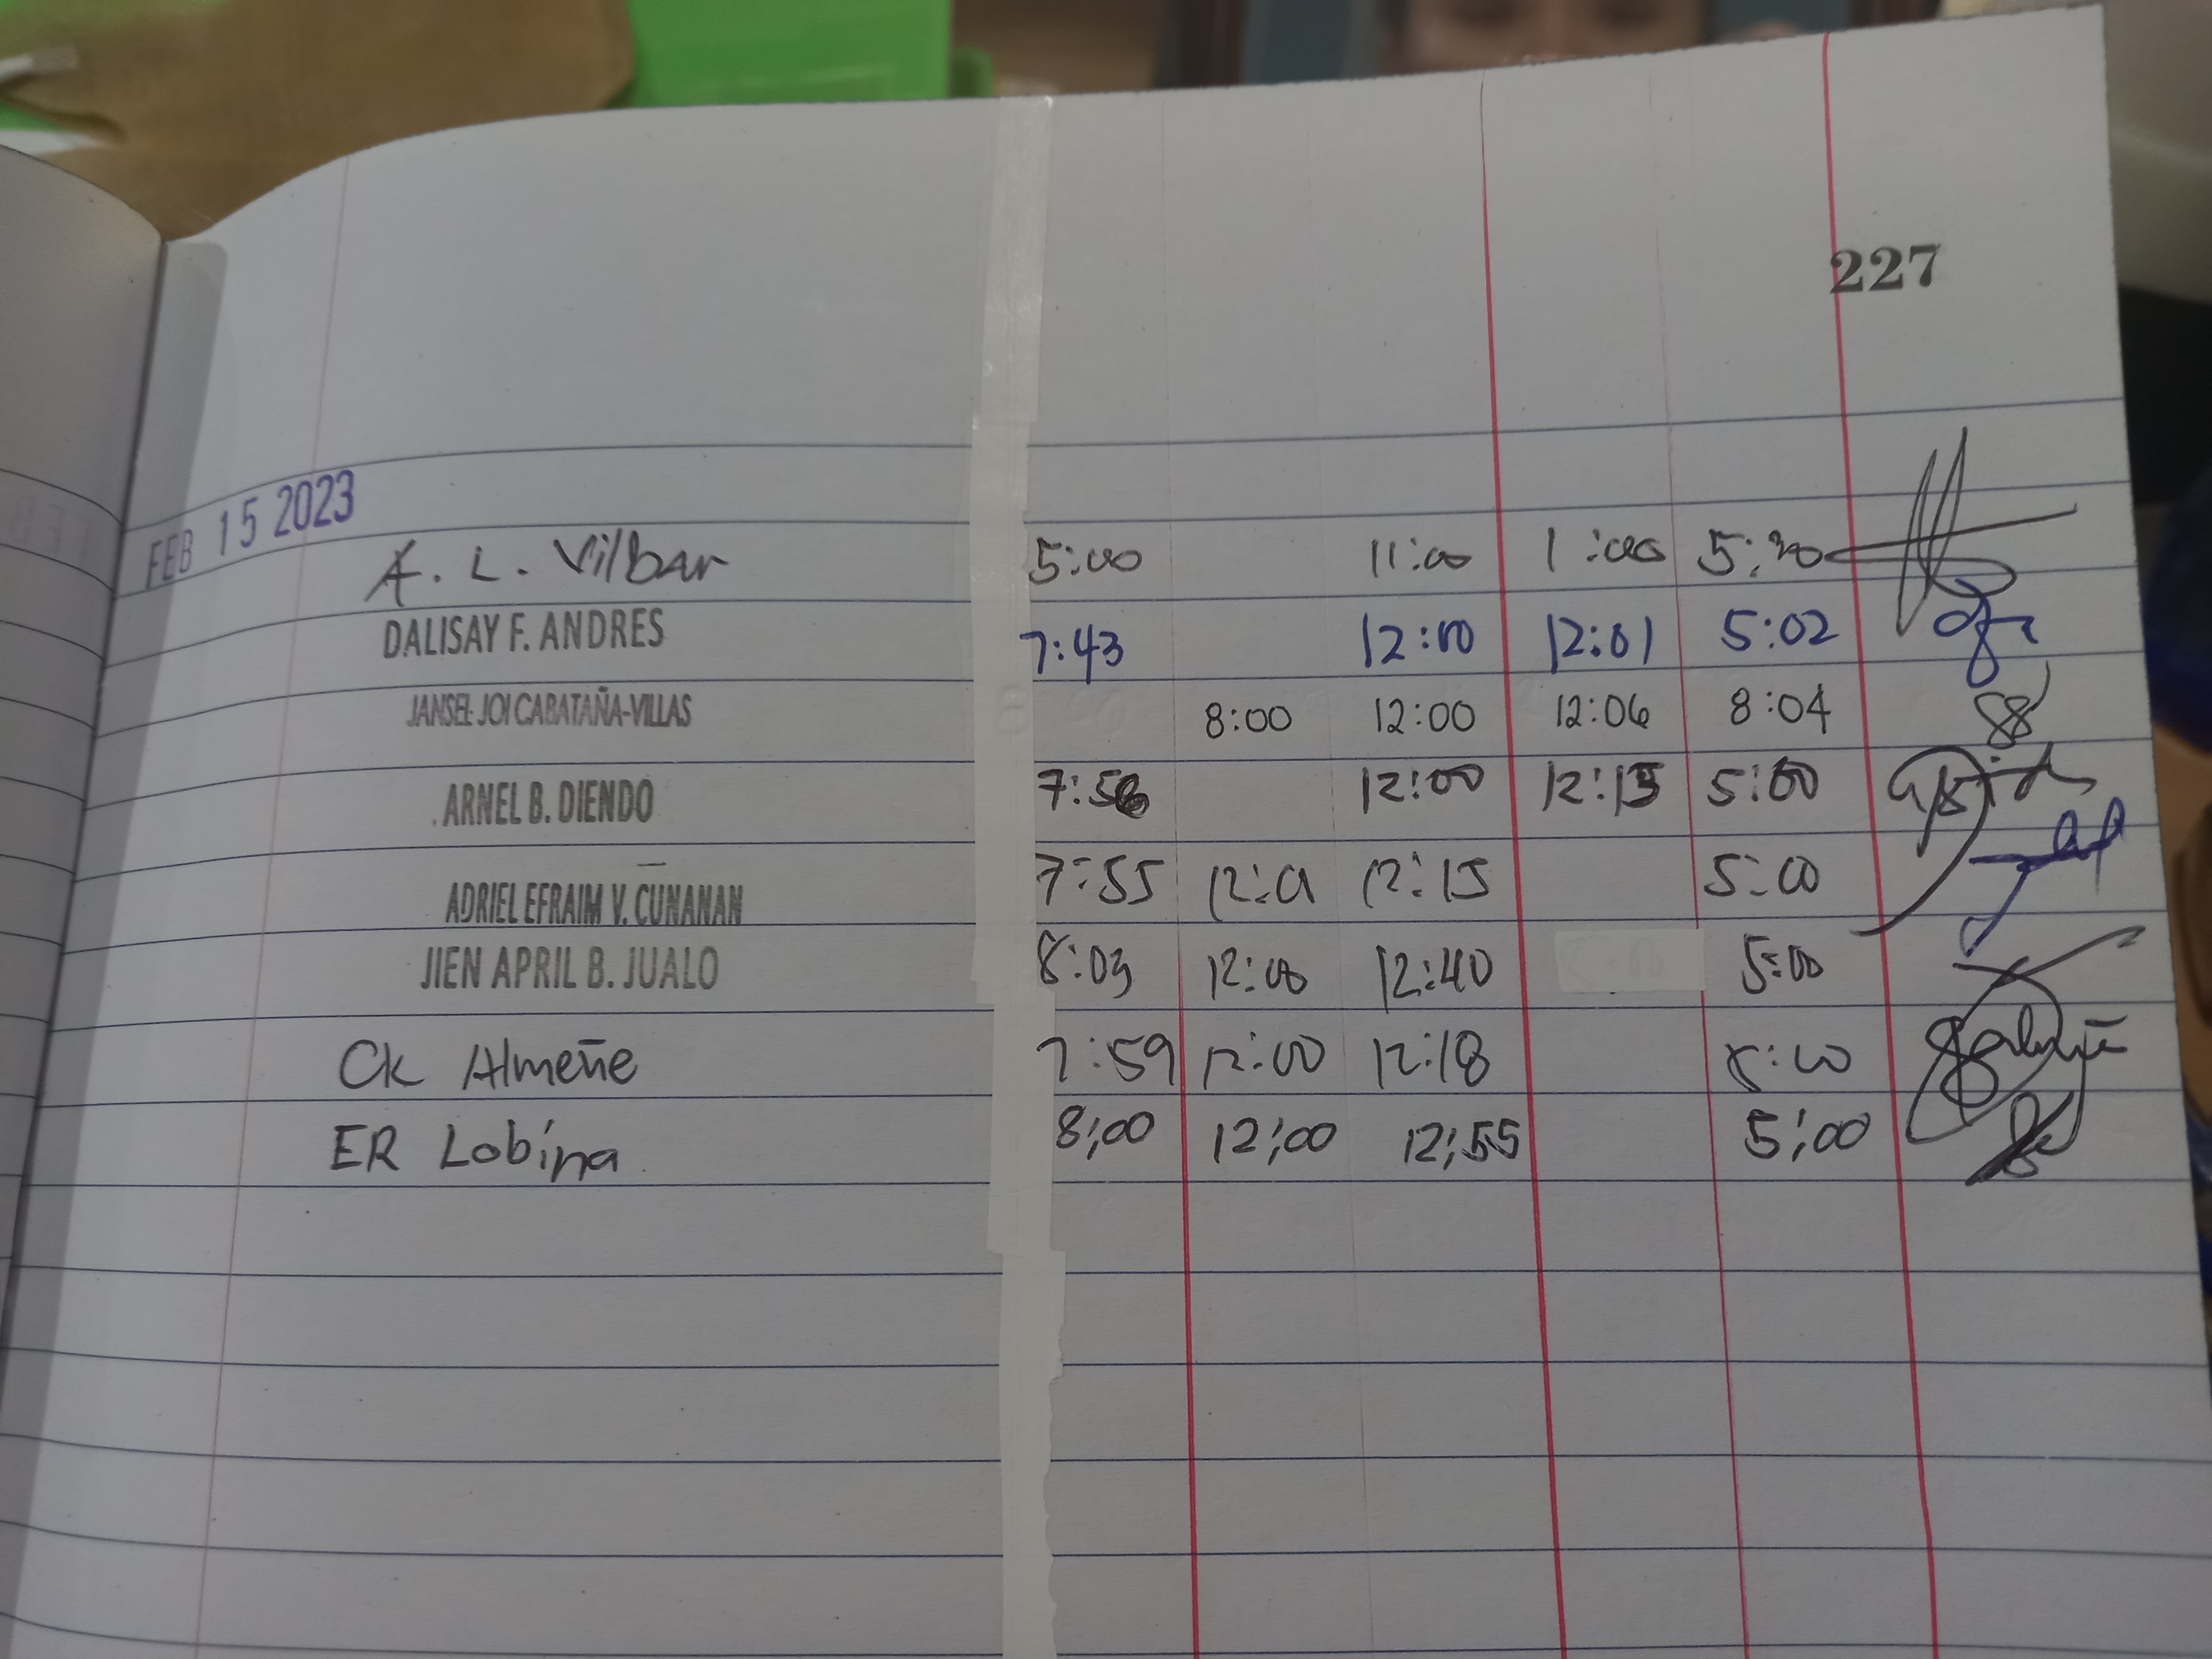 227
FEB 15 2023
A. L. Vilbar 5:00 11:00 1:00 5:30
DALISAY F. ANDRES 7:43 12:00 12:01 5:02
JANSEL JOI CABATAÑA-VILLAS 8:00 12:00 12:06 8:04
ARNEL B. DIENDO 7:56 12:00 12:15 5:00
ADRIEL EFRAIM V. CUNANAN 7:55 12:01 12:15 5:00
JIEN APRIL B. JUALO 8:03 12:00 12:40 5:00
CK Almeñe 7:59 12:00 12:18 5:00
ER Lobina 8:00 12:00 12:55 5:00